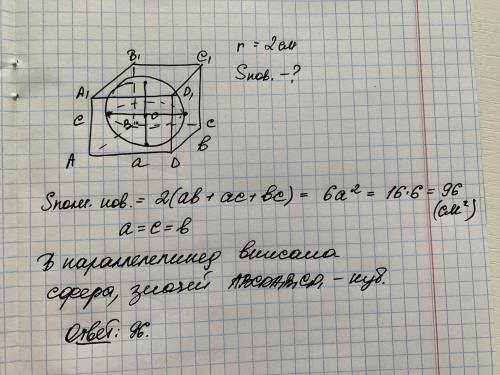 r = 2см
Sпов. - ?
B₁
C₁
A₁
D₁
C
O
B
C
B
A
a
D
Sполн. пов. = 2(ab + ac + bc) = 6a² = 16·6 = 96 (см²)
a = c = b
В параллелепипед вписана
сфера, значит ABCDA₁B₁C₁D₁ - куб.
Ответ: 96.